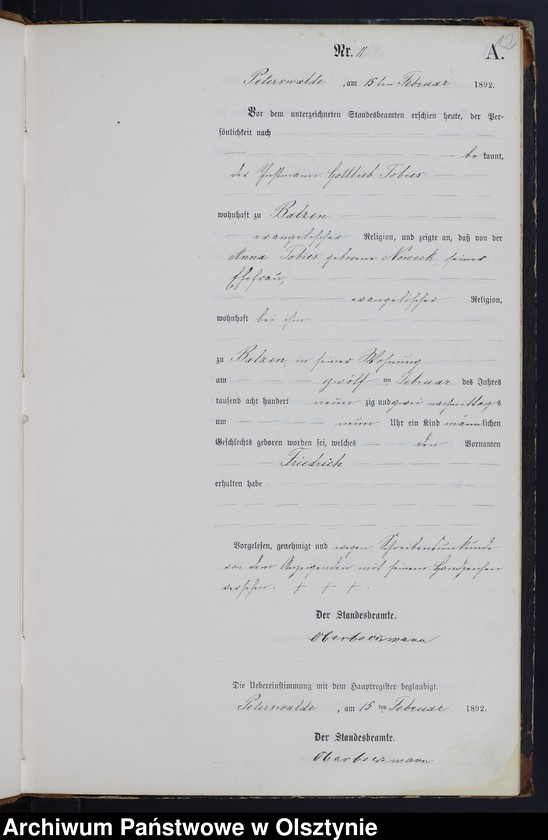 12
Nr. 11
A.
Peterswalde, am 15ten Februar 1892.
Vor dem unterzeichneten Standesbeamten erschien heute, der Per-
sönlichkeit nach
bekannt,
der Instmann Gottlieb Tobies
wohnhaft zu Balzen
evangelischer Religion, und zeigte an, daß von der
Anna Tobies geborne Noweck, seiner
Ehefrau,
evangelischer Religion,
wohnhaft bei ihm
zu Balzen, in seiner Wohnung
am zwölf ten Februar des Jahres
tausend acht hundert neun zig und zwei
um neun Uhr ein Kind männlichen
Geschlechts geboren worden sei, welches den Vornamen
Friedrich
erhalten habe.
Vorgelesen, genehmigt und wegen Schreibensunkunde
von dem Anzeigenden mit seinem Handzeichen
versehen. + + +.
Der Standesbeamte.
Die Uebereinstimmung mit dem Hauptregister beglaubigt.
Peterswalde, am 15 ten Februar 1892.
Der Standesbeamte.
Archiwum Państwowe w Olsztynie